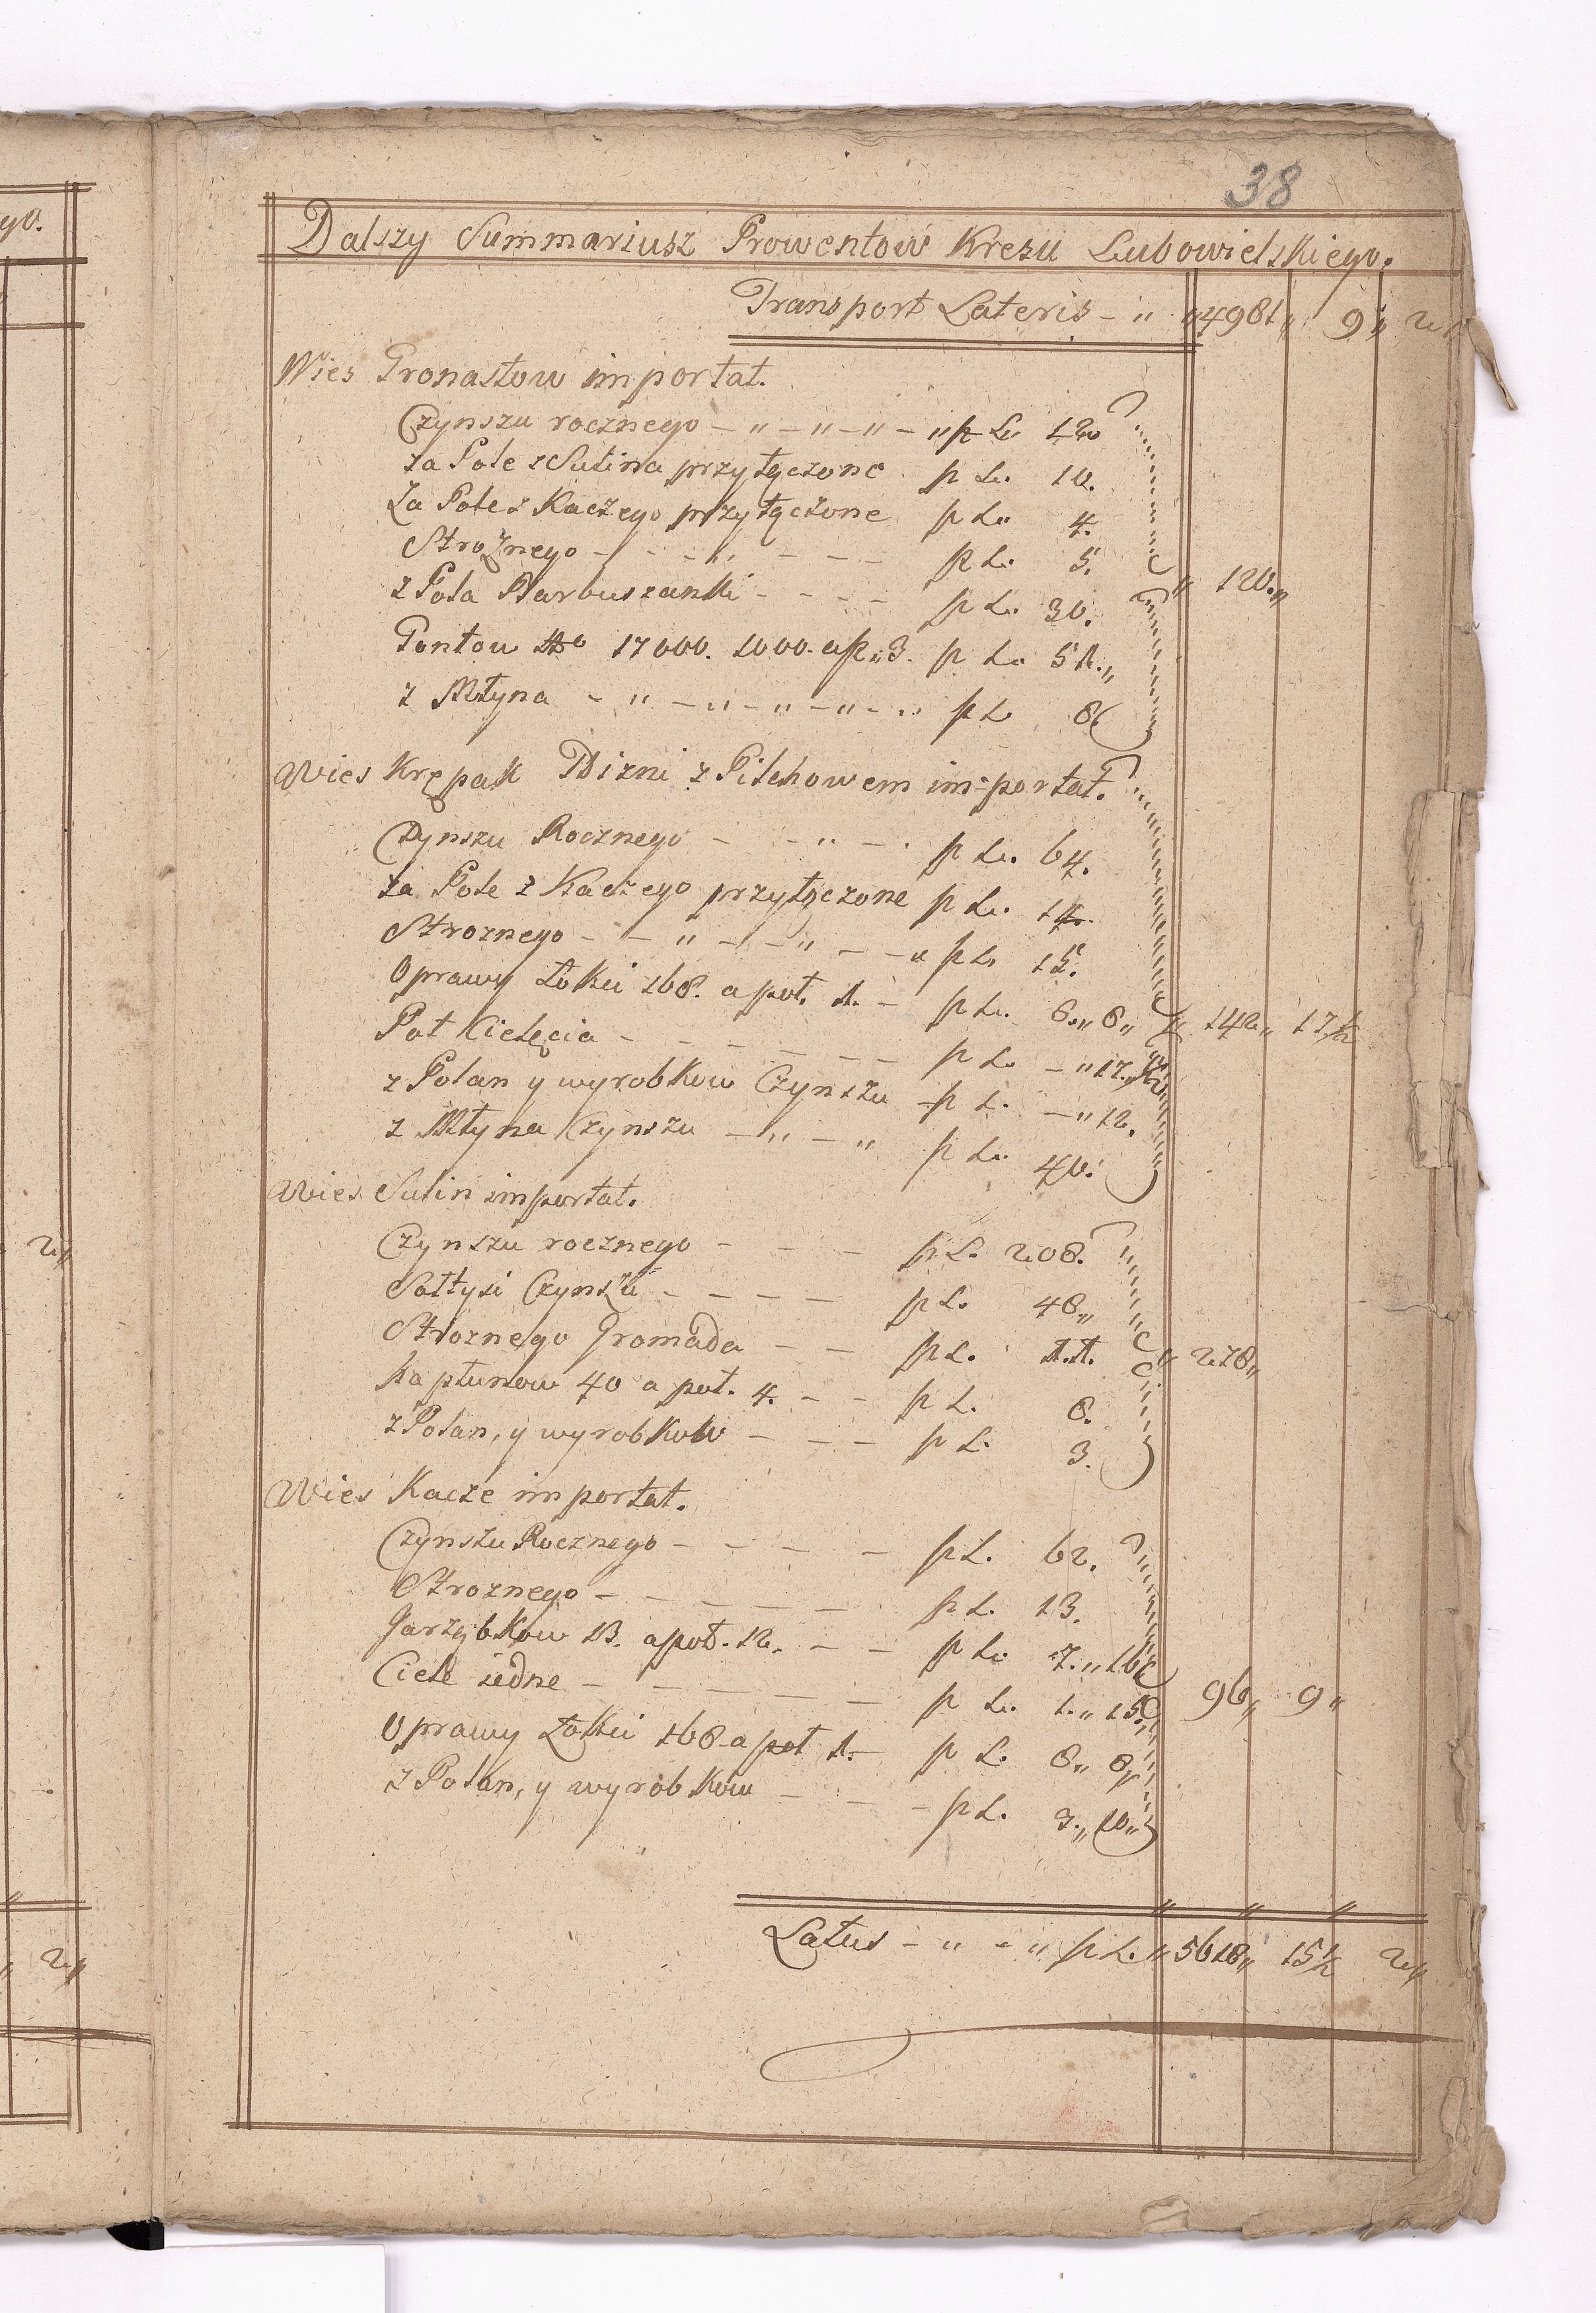 go.
38
Dalszy Summariusz Prowentow Kresu Lubowielskiego.
Transport Lateris - " "4981" 9" 2"
Wies Gronastow importat.
Czynszu rocznego - " - " - " - " p L. 12.
za Pole z Sulina przyłączone p L. 10.
Za Pole z Kaczego przyłączone p L. 4.
Strożnego - - - " - - - p L. 5.
" 120."
z Pola Barbuszanki - - - - p L. 30.
Gontow No 17000. 1000. a p " 3. p L. 51."
z Młyna - " - " - " - " - " p L. 8
Wies Krępak Bizni z Pilchowem importat.
Czynszu Rocznego - - " - . p L. 64.
za Pole z Kaczego przyłączone p L. 14.
Stroznego - - " - - " - - " p L. 15.
Oprawy Łokci 168. a poł. 1. - p L. 8." 8" " 142" 17 1/2
Poł Cielęcia - - - - - - - p L. - " 17. 1/2
z Polan y wyrobkow Czynszu p L. - " 12.
z Młyna Czynszu - " - " p L. 40.
Wies Sulin importat.
Czynszu rocznego - - - p L. 208.
Sołtysi Czynszu - - - - p L. 48"
Stroznego Gromada - - p L. 11. " 278"
Kapłunow 40 a poł. 4. - - p L. 8.
z Polan, y wyrobkow - - - p L. 3.
Wies Kacze importat.
Czynszu Rocznego - - - - p L. 62.
Stroznego - - - - - p L. 13.
Jarząbkow 13. a poł. 12. - - p L. 7." 16
Ciele iedne - - - - - - p L. 1." 15" 96" 9"
Oprawy Łokci 168 a poł 1. - p L. 8" 8"
z Polan, y wyrobkow - - - p L. 3." 10"
Latus - " - " p L. " 5618" 15 1/2 2"
2"
2"